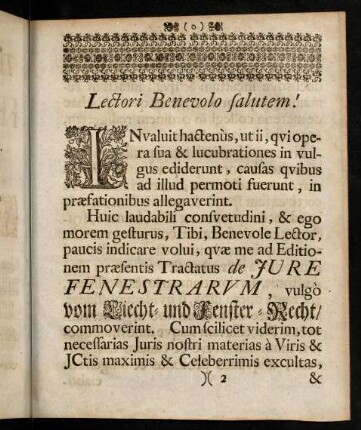 (o)
Lectori Benevolo salutem!
INvaluit hactenùs, ut ii, qvi ope-
ra sua & lucubrationes in vul-
gus ediderunt, causas qvibus
ad illud permoti fuerunt, in
præfationibus allegaverint.
Huic laudabili consvetudini, & ego
morem gesturus, Tibi, Benevole Lector,
paucis indicare volui, qvæ me ad Editio-
nem præsentis Tractatus de JURE
FENESTRARVM, vulgò
vom Liecht- und Fenster-Recht/
commoverint. Cum scilicet viderim, tot
necessarias Juris nostri materias à Viris &
JCtis maximis & Celeberrimis excultas,
)( 2 &